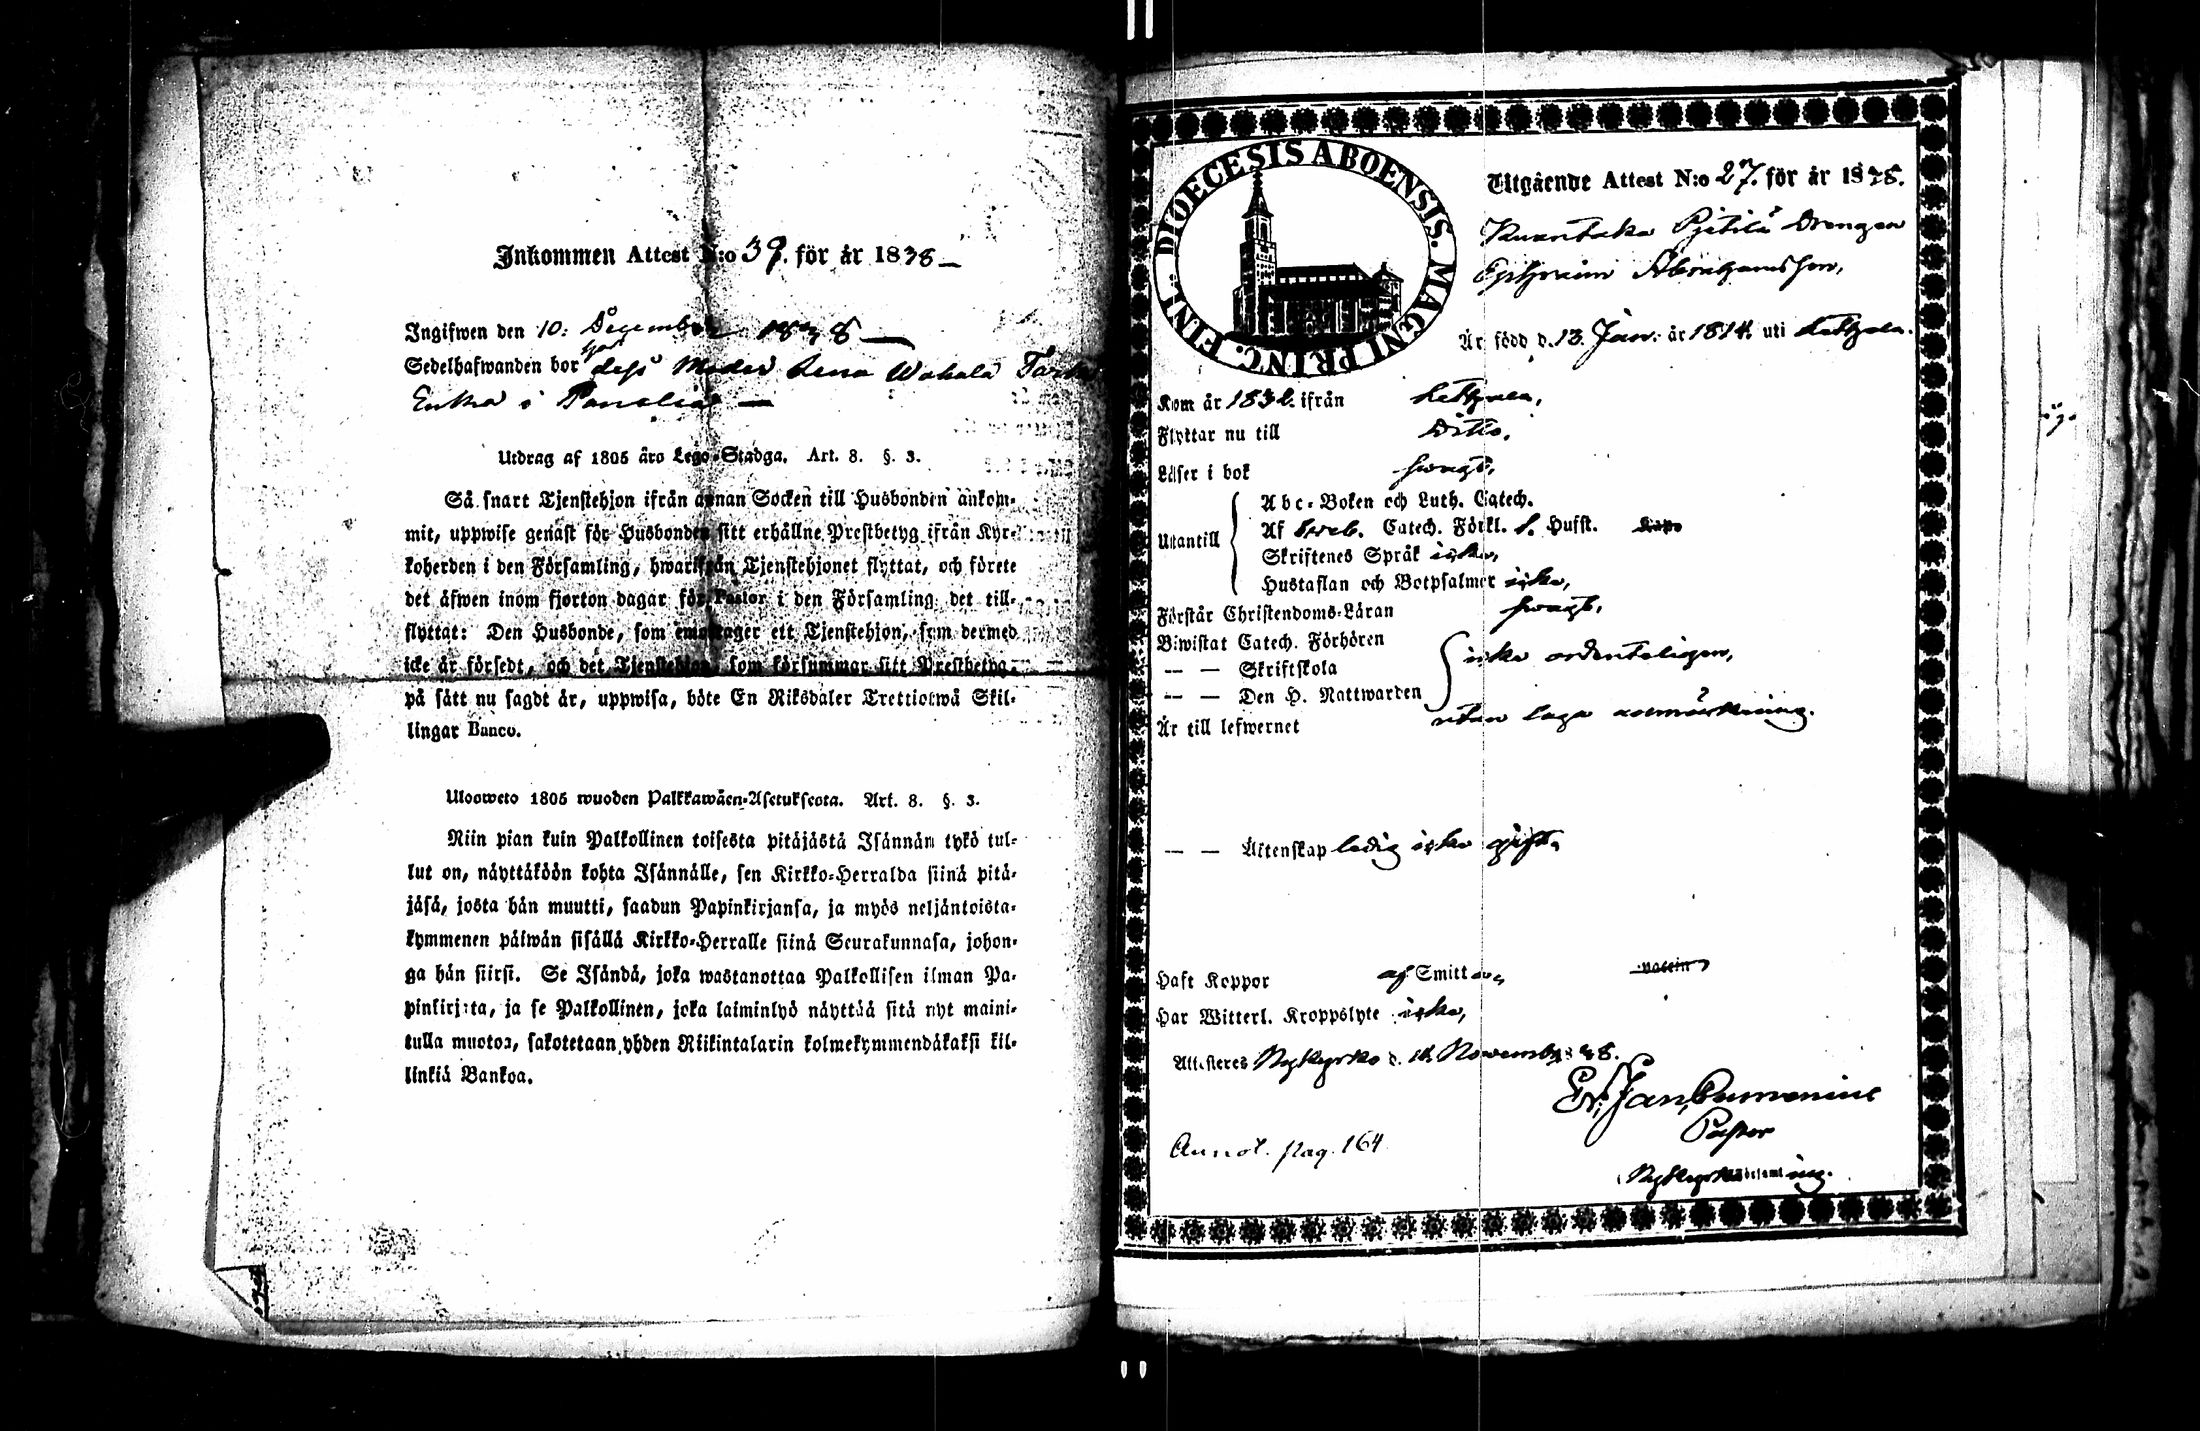 Inkommen Attest N:o 39. för år 1838
Ingifwen den 10: December 1838
Sedelhafwanden bor hos dess Moder Lena Wahala
Enka i Panelia
Utdrag af 1805 års Lego-Stadga. Art. 8. §. 3.
Så snart Tjenstehjon ifrån annan Socken till Husbonden ankom-
mit, uppwise genast för Husbonden sitt erhållne Prestbetyg ifrån Kyr-
koherden i den Församling, hwarifrån Tjenstehjonet flyttat, och förete
det äfwen inom fjorton dagar för Pastor i den Församling det till-
flyttat: Den Husbonde, som emottager ett Tjenstehjon, som dermed
icke är försedt, och det Tjenstehjon, som försummar sitt Prestbetyg,
på sätt nu sagdt är, uppwisa, böte En Riksdaler Trettiotwå Skil-
lingar Banco.
Ulosweto 1805 wuoden Palkkawäen-Asetuksesta. Art. 8. §. 3.
Niin pian kuin Palkollinen toisesta pitäjästä Isännän tykö tul-
lut on, näyttäköön kohta Isännälle, sen Kirkko-Herralda siinä pitä-
jäsä, josta hän muutti, saadun Papinkirjansa, ja myös neljäntoista-
kymmenen päiwän sisällä Kirkko-Herralle siinä Seurakunnasa, johon-
ga hän siirsi. Se Isändä, joka wastanottaa Palkollisen ilman Pa-
pinkirjata, ja se Palkollinen, joka laiminlyö näyttää sitä nyt maini-
tulla muotoa, sakotetaan yhden Riikintalarin kolmekymmendäkaksi kil-
linkiä Bankoa.
FINL. DIOECESIS ABOENSIS. MAGNI PRINC.
Utgående Attest N:o 27. för år 1838.
Pietilä Drengen
Ephraim Abrahamsson,
Är född d. 13. Jan. år 1814. uti
Kom år ifrån
Flyttar nu till Ditto.
Läser i bok swagt,
Utantill
Abc-Boken och Luth. Catech.
Af Catech. Förkl. Hufst.
Skriftenes Språk icke,
Hustaflan och Botpsalmer icke,
Förstår Christendoms-Läran swagt,
Biwistat Catech. Förhören
— — Skriftskola icke ordenteligen,
— — Den H. Nattwarden
Är till lefwernet utan laga anmärkning.
— — Äktenskap ledig icke gift,
Haft Koppor af Smitta, vaccin
Har Witterl. Kroppslyte icke,
Attesteres Nykyrko d. November 1838.
Pastor
Nykyrko Församling.
Annot. pag. 164